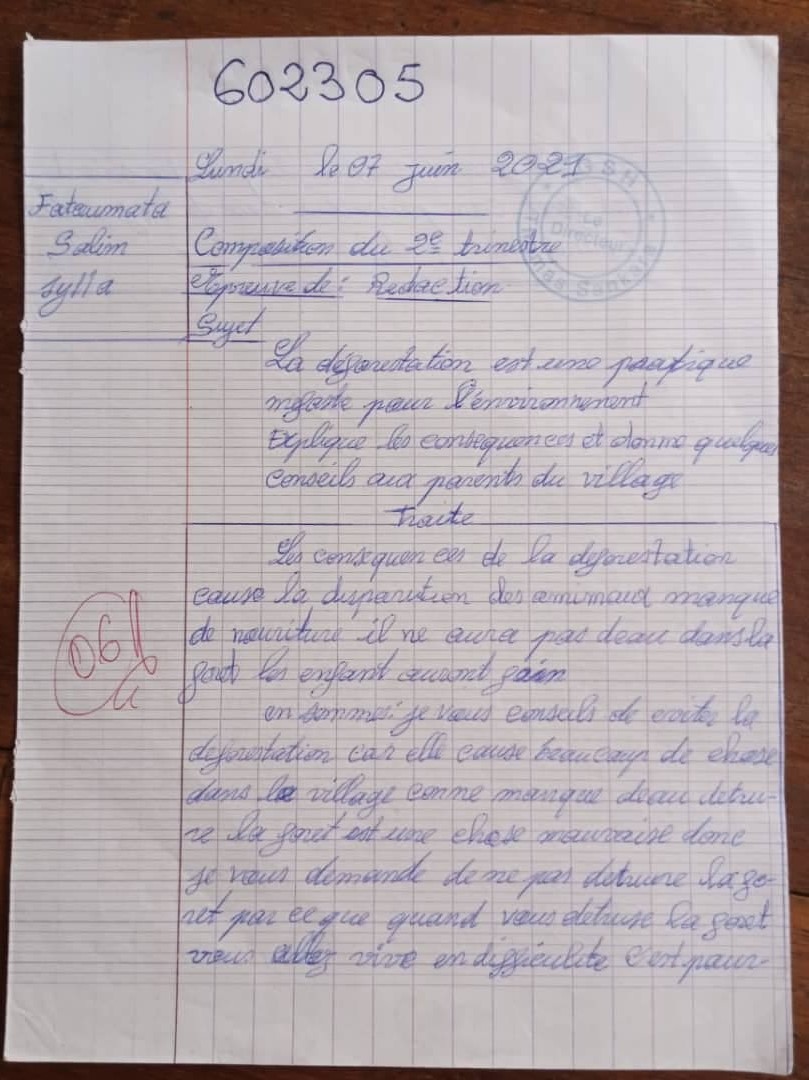 602305
Lundi le 07 juin 2021
OSSH
Le Directeur
Thomas Sankara
Fatoumata
Salim
Sylla
Composition du 2e trimestre
Epreuve de : Redaction
Sujet
La déforestation est une pratique
nefaste pour l'environnement
Explique les consequences et donne quelques
conseils aux parents du village
Traite
Les consequences de la deforestation
cause la disparition des animaud manque
de nouriture il ne aura pas deau dans la
foret les enfant auront faim
en sommes: je vous conseils de eviter la
deforestation car elle cause beaucoup de chose
dans le village comme manque deau detrui-
re la foret est une chose mauvaise donc
je vous demande de ne pas detruire la fo-
ret par ce que quand vous detruse la foret
vous allez vive en difficulite c'est pour-
06